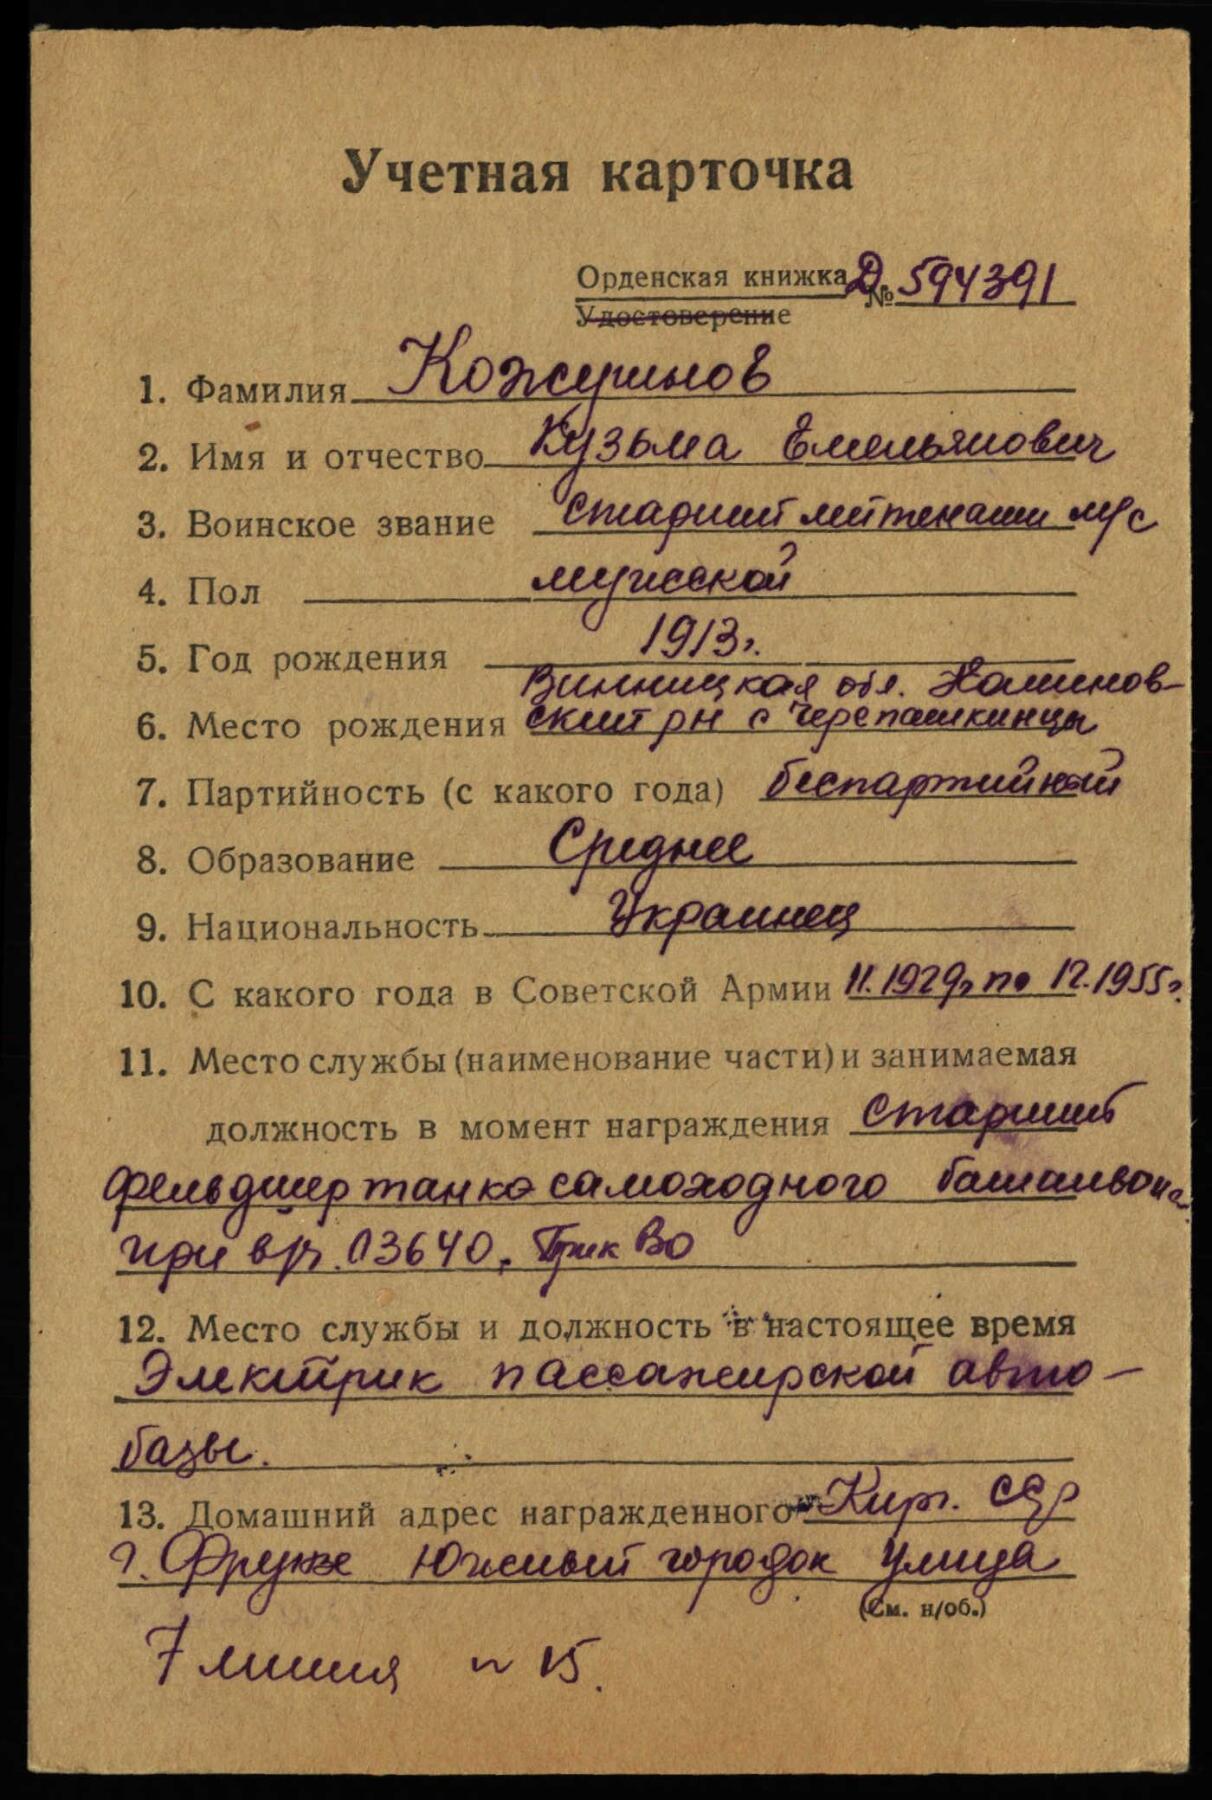 Учетная карточка
Орденская книжка Д № 594391
Удостоверение
1. Фамилия Кожуринов
2. Имя и отчество Кузьма Емельянович
3. Воинское звание старший лейтенант м/с
4. Пол мужской
5. Год рождения 1913г.
Винницкая обл. Калинов-
6. Место рождения ский рн с Черепашкинцы
7. Партийность (с какого года) беспартийный
8. Образование Среднее
9. Национальность Украинец
10. С какого года в Советской Армии 11.1929г по 12.1955г.
11. Место службы (наименование части) и занимаемая
должность в момент награждения старший
фельдшер танко самоходного батальона
при в/ч. 13640, ПрикВО
12. Место службы и должность в настоящее время
Электрик пассажирской авто-
базы.
13. Домашний адрес награжденного Кирг. ССР
г. Фрунзе Южный городок улица
(См. н/об.)
7 линия № 15.